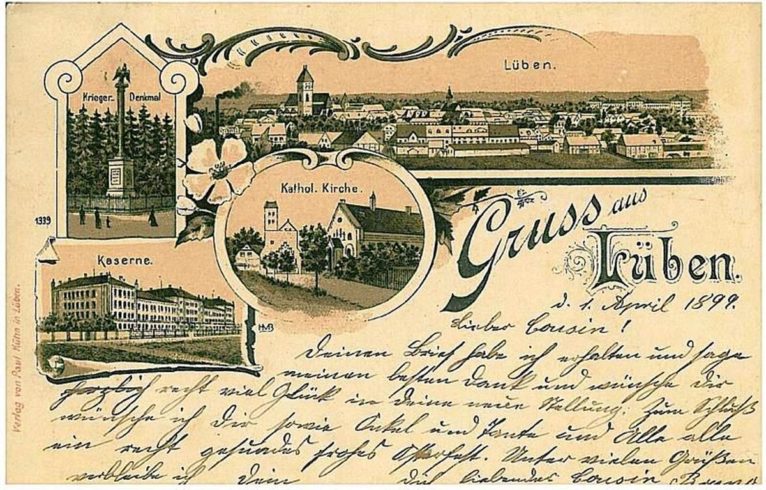 Lüben.
Krieger-Denkmal
Kathol. Kirche.
1339
Kaserne.
HMB
Gruss aus
Lüben.
Verlag von Paul Kühn in Lüben.
d. 1. April 1899.
Lieber Cousin!
Deinen Brief habe ich erhalten und sage
meinen besten Dank und wünsche Dir
herzlich recht viel Glück in Deine neue Stellung. Zum Schluß
wünsche ich Dir sowie Onkel und Tante und Alle alle
ein recht gesundes frohes Osterfest. Unter vielen Grüßen
verbleibe ich Dein Dich liebendes Cousin